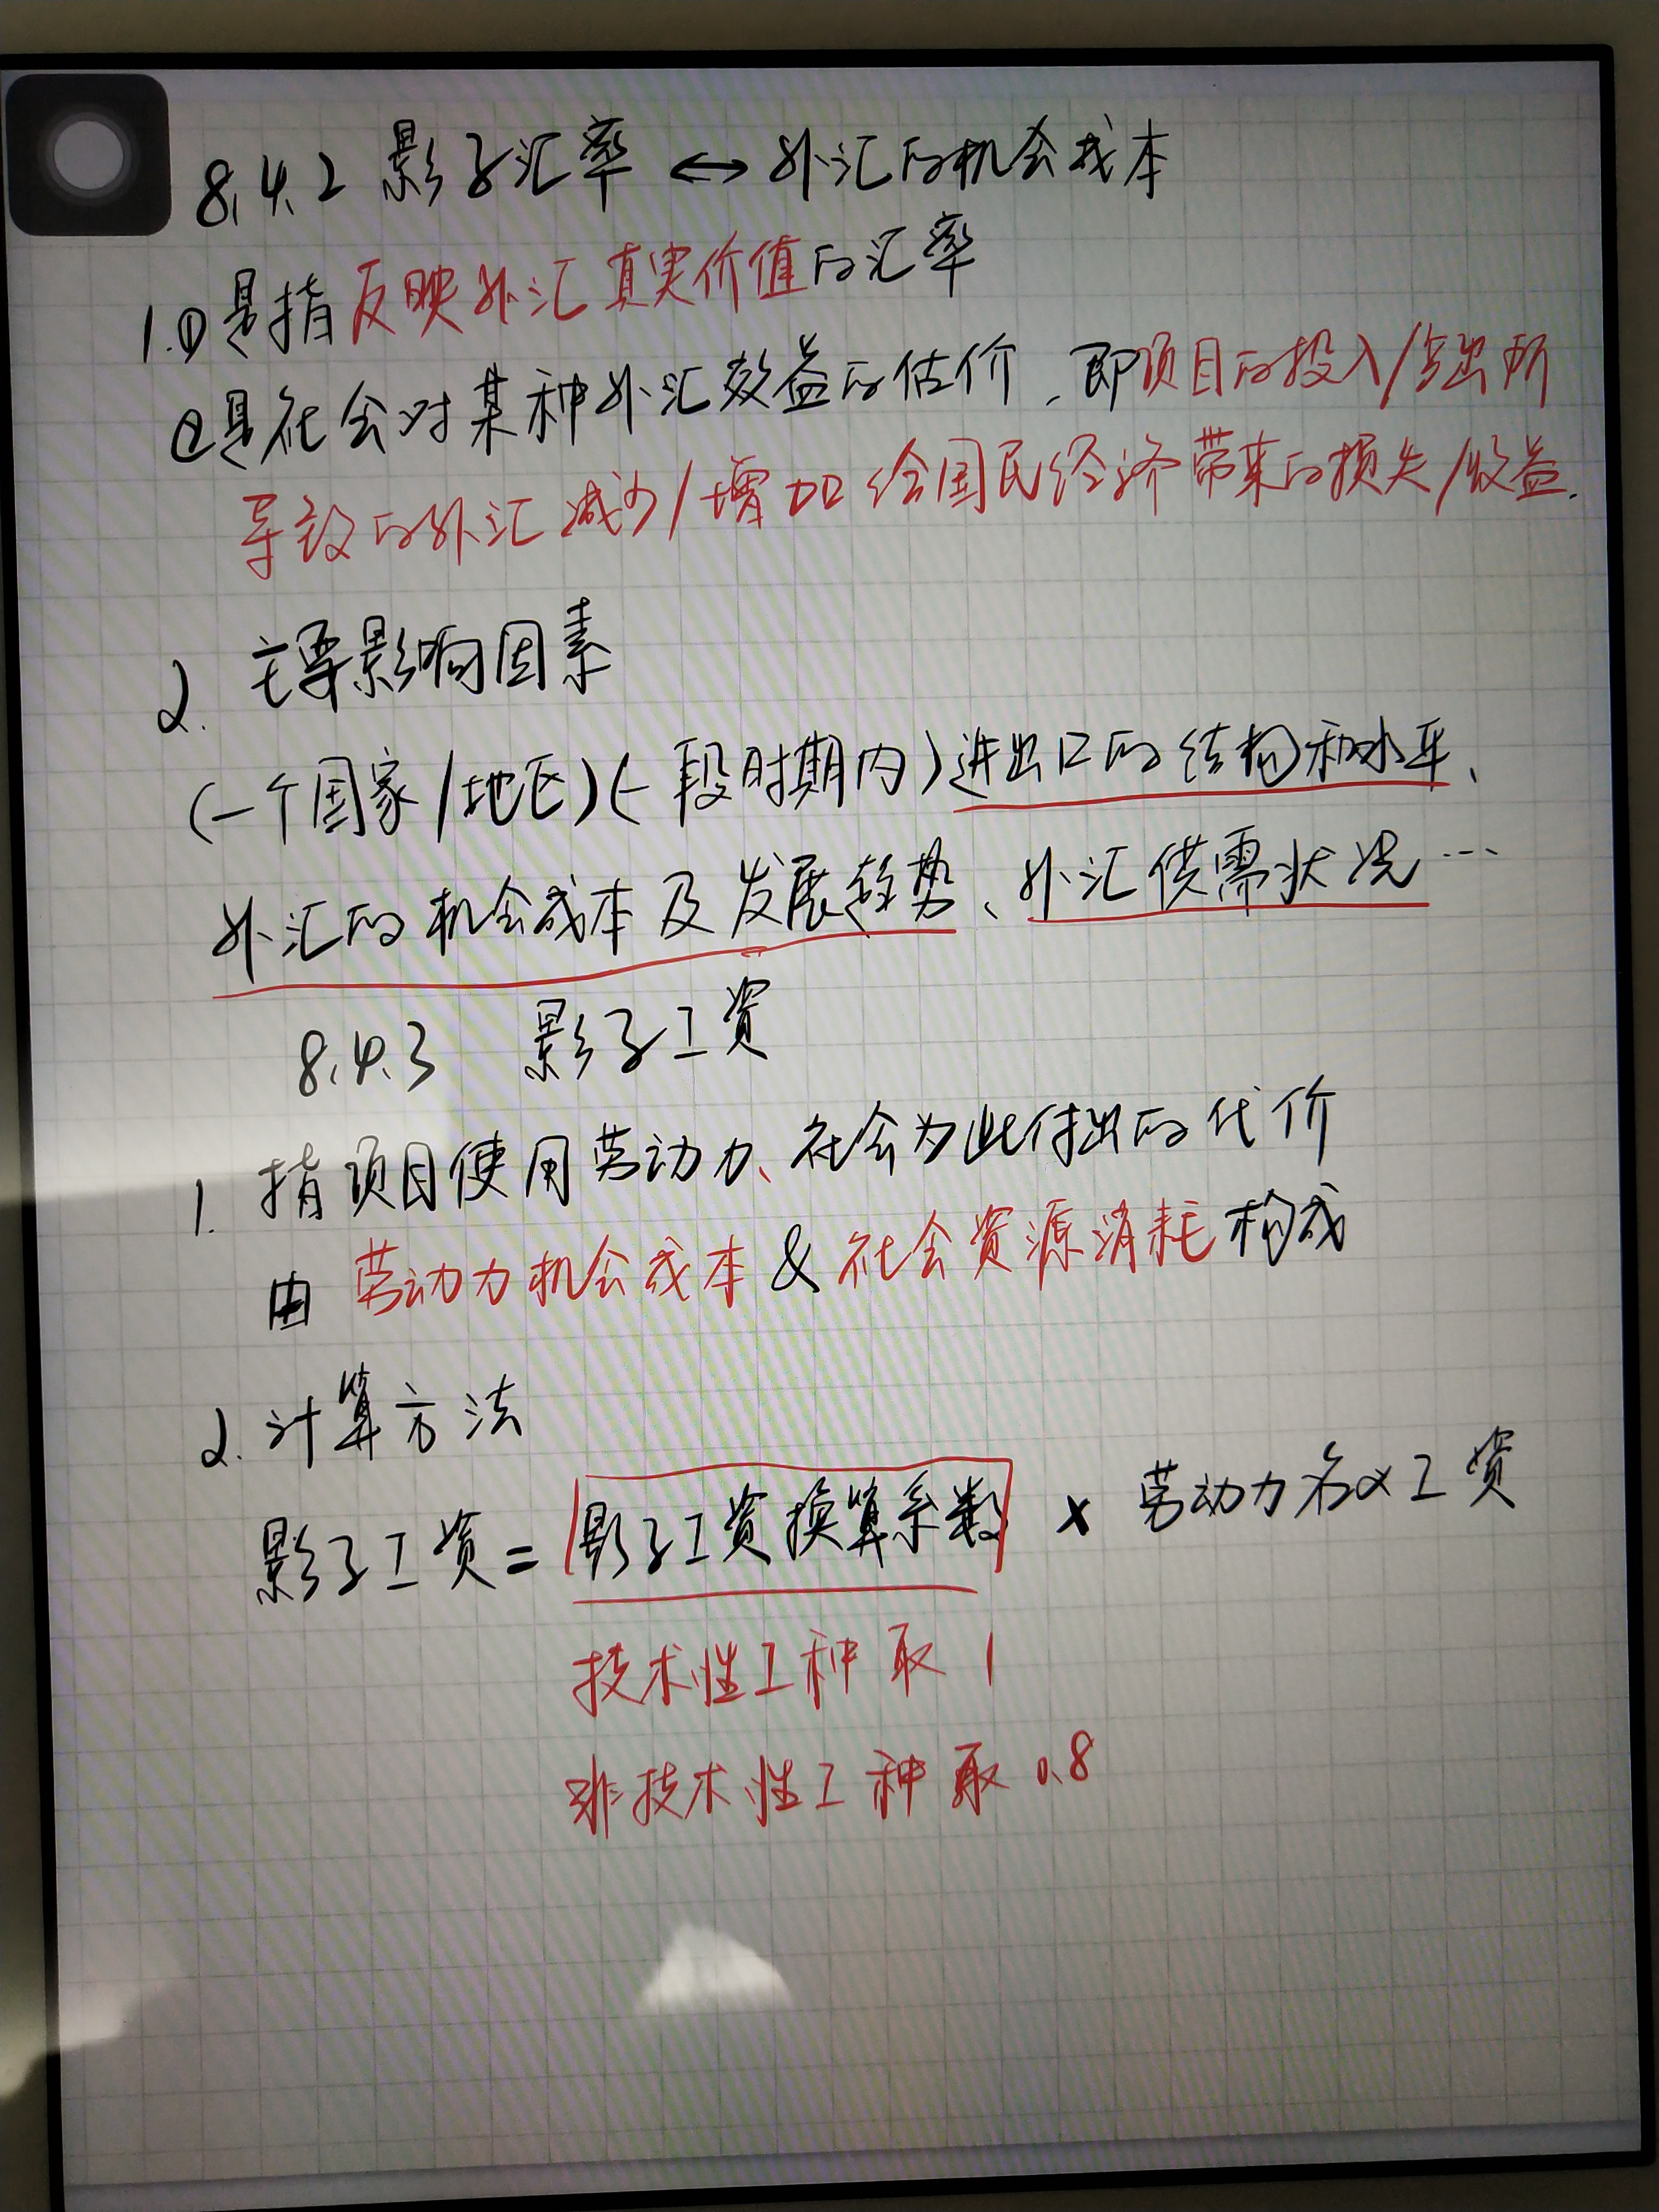 8.4.2 影子汇率 ↔ 外汇的机会成本
1.①是指反映外汇真实价值的汇率
②是社会对某种外汇效益的估价,即项目的投入/产出所
导致的外汇减少/增加给国民经济带来的损失/收益.
2. 主要影响因素
(一个国家/地区)(一段时期内)进出口的结构和水平、
外汇的机会成本及发展趋势、外汇供需状况…
8.4.3 影子工资
1. 指项目使用劳动力、社会为此付出的代价
由 劳动力机会成本 & 社会资源消耗构成
2. 计算方法
影子工资 = 影子工资换算系数 × 劳动力名义工资
技术性工种取 1
非技术性工种取 0.8